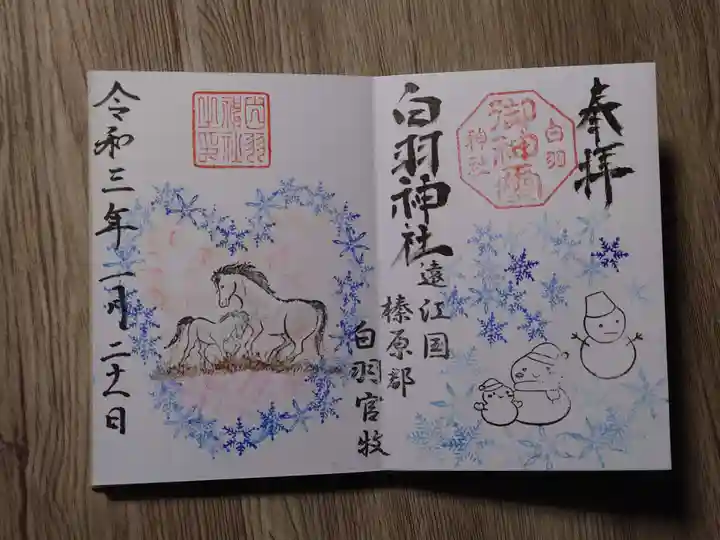 奉拝
白羽
神社
白羽神社
遠江国
榛原郡
白羽官牧
白羽
神社
之印
令和三年二月二十一日